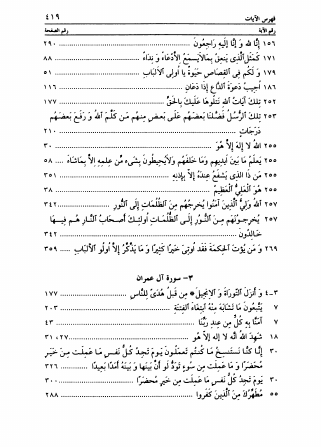 فهرس الآيات ٤١٩
رقم الآية رقم الصفحة
١٥٦ إنّا لله و إنّا إليه راجعون ٢٩٠
١٧١ كمثل الّذي ينعق بما لايسمع إلّا دعاء و نداء ٨٨
١٧٩ و لكم في القصاص حيوة يا أولي الألباب ٥١
١٨٦ أجيب دعوة الدّاع إذا دعان ١١٦
٢٥٢ تلك آيات الله نتلوها عليك بالحقّ ١٧٧
٢٥٣ تلك الرّسل فضّلنا بعضهم على بعض منهم من كلّم الله و رفع بعضهم
درجات ٢١٠
٢٥٥ الله لا إله إلّا هو ٣٠
٢٥٥ يعلم ما بين أيديهم و ما خلفهم و لايحيطون بشيء من علمه إلّا بماشاء ٥٨
٢٥٥ من ذا الّذي يشفع عنده إلّا بإذنه ٣٥١
٢٥٥ هو العليّ العظيم ٣٨
٢٥٧ الله وليّ الّذين آمنوا يخرجهم من الظّلمات إلى النّور ٣٤٢
٢٥٧ يخرجونهم من النّور إلى الظّلمات أولئك أصحاب النّار هم فيها
خالدون ٣٤٢
٢٦٩ و من يؤت الحكمة فقد أوتي خيرًا كثيرًا و ما يذّكّر إلّا أولو الألباب ٣٥٩
٣ـ سورة آل عمران
٣-٤ و أنزل التّوراة و الإنجيل* من قبل هدًى للنّاس ١٧٧
٧ يتّبعون ما تشابه منه ابتغاء الفتنة ٢٠٣
٧ آمنّا به كلّ من عند ربّنا ٤٣
١٨ شهد الله أنّه لا إله إلّا هو ٢٧، ٣١
٣٠ إنّا كنّا نستنسخ ما كنتم تعملون يوم تجد كلّ نفس ما عملت من خير
محضرًا و ما عملت من سوء تودّ لو أنّ بينها و بينه أمدًا بعيدًا ٣٢٦
٣٠ يوم تجد كلّ نفس ما عملت من خير محضرًا ٣٠٠
٥٥ مطهّرك من الّذين كفروا ٢٨٨